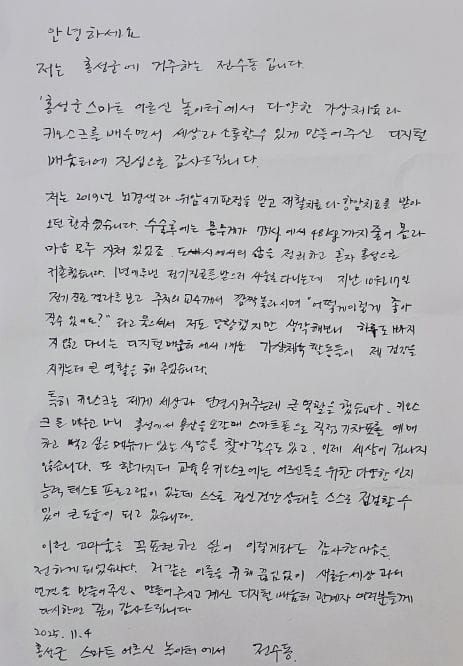 안녕하세요
저는 홍성군에 거주하는 전수동 입니다.
'홍성군 스마트 어르신 놀이터'에서 다양한 가상체험과
키오스크를 배우면서 세상과 소통할수 있게 만들어주신 디지털
배움터에 진심으로 감사드립니다.
저는 2019년 뇌경색과 위암4기판정을 받고 재활치료와 항암치료를 받아
오던 환자였습니다. 수술후에는 몸무게가 73kg에서 48kg까지 줄어 몸과
마음 모두 지쳐 있었죠. 도시에서의 삶을 정리하고 혼자 홍성으로
귀촌했습니다. 1년에 두번 정기진료를 받으러 서울로 다니는데 지난 10월17일
정기진료 결과를 보고 주치의 교수께서 깜짝놀라시며 "어떻게이렇게 좋아
질수 있어요?" 라고 물으셔서 저도 당황했지만 생각해보니 하루도 빠지
지 않고 다니는 디지털배움터에서 배운 가상체육 활동들이 제 건강을
지키는데 큰 역할을 해 주었습니다.
특히 키오스크는 제게 세상과 연결시켜주는데 큰 역할을 했습니다. 키오스
크를 배우고 나니 홍성에서 용산을 오갈때 스마트폰으로 직접 기차표를 예매
하고 먹고 싶은메뉴가 있는 식당을 찾아갈수도 있고, 이제 세상이 겁나지
않습니다. 또 한가지더 교육용키오스크에는 어르신들을 위한 다양한 인지
능력 테스트 프로그램이 있는데 스스로 정신건강 상태를 스스로 점검할 수
있어 큰 도움이 되고 있습니다.
이런 고마움을 꼭표현하고 싶어 이렇게라도 감사한마음을
전하게 되었습니다. 저 같은 이들을 위해 끊임없이 새로운세상 과의
연결을 만들어주신, 만들어 주시고 계신 디지털 배움터 관계자 여러분들께
다시한번 깊이 감사드립니다
2025. 11. 4
홍성군 스마트 어르신 놀이터에서 전수동.